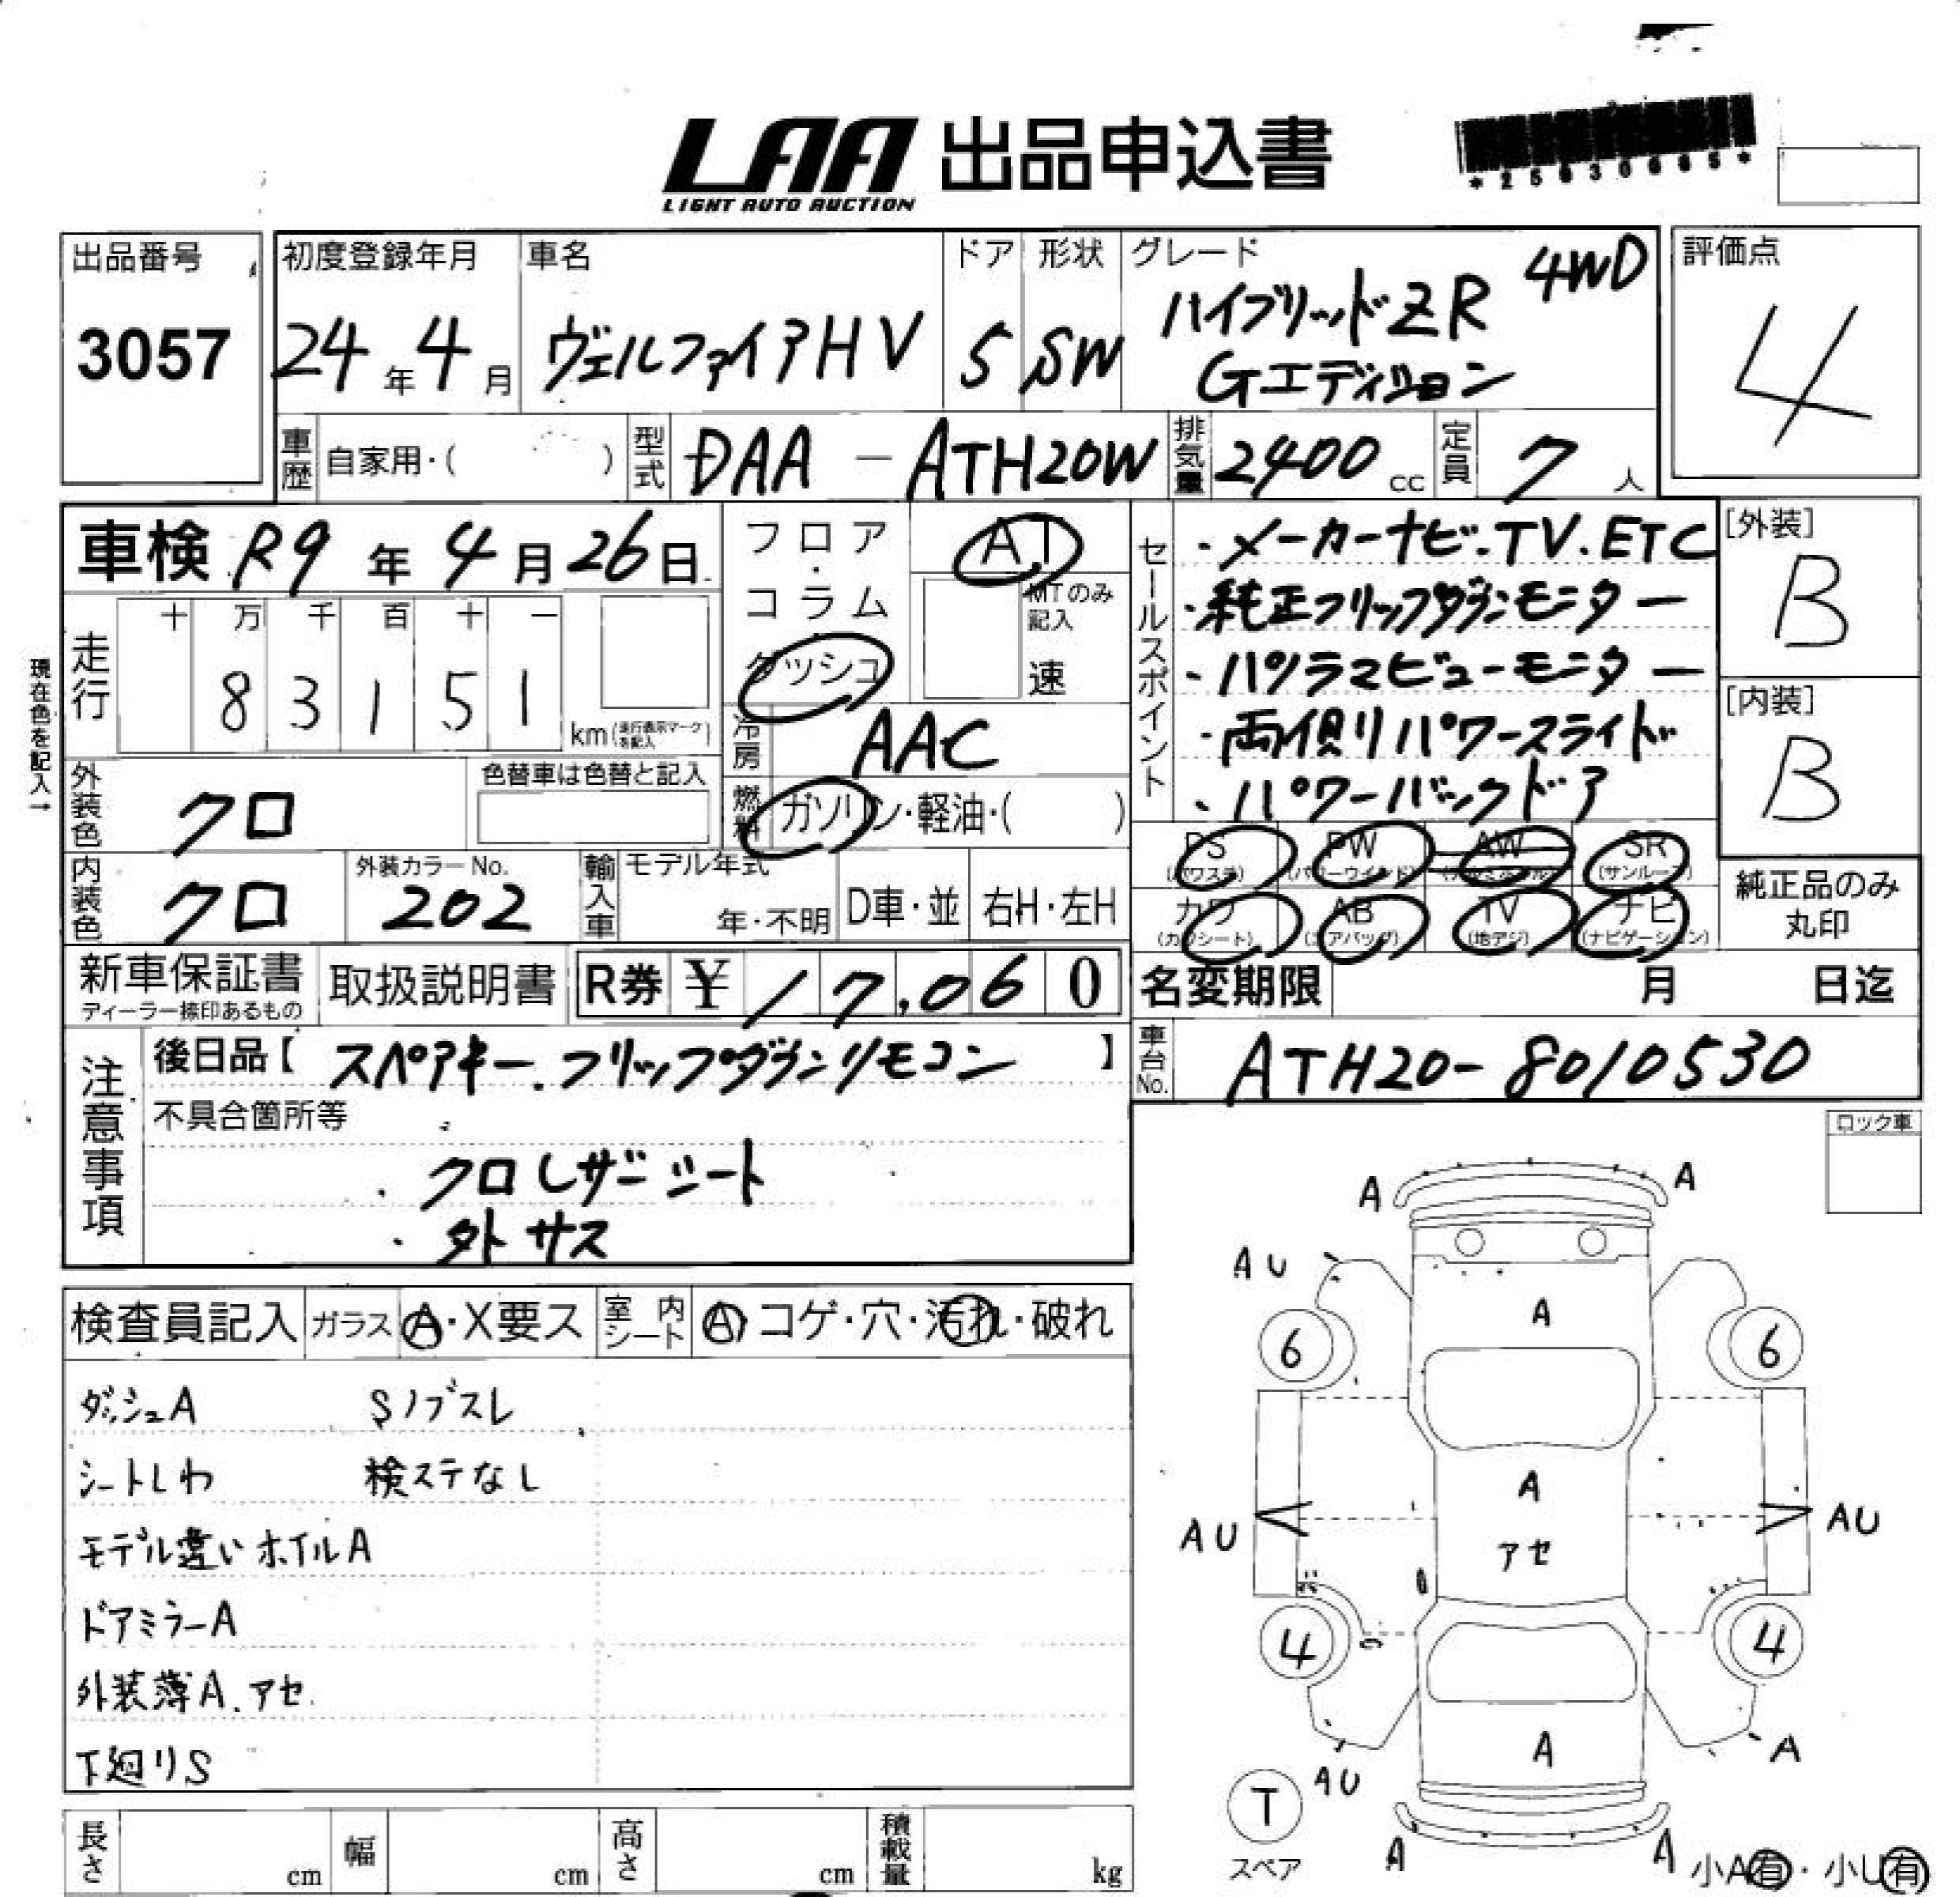 LAA 出品申込書
LIGHT AUTO AUCTION
出品番号
3057
初度登録年月
24年4月
車名
ヴェルファイアHV
ドア
5
形状
SW
グレード
ハイブリッドZR 4WD
Gエディション
評価点
4
車歴 自家用・( )
型式 DAA-ATH20W
排気量 2400cc
定員 7人
車検 R9年4月26日
フロア・コラム・ダッシュ
AT
MTのみ記入
速
走行
十 万 千 百 十 一
8 3 1 5 1
km(走行表示マークを記入)
現在色を記入→
冷房 AAC
燃料 ガソリン・軽油・( )
外装色 クロ
色替車は色替と記入
内装色 クロ
外装カラーNo.
202
輸入車
モデル年式
年・不明
D車・並
右H・左H
セールスポイント
・メーカーナビ.TV.ETC
・純正フリップダウンモニター
・パノラマビューモニター
・両側パワースライド
・パワーバックドア
[外装]
B
[内装]
B
PS (パワステ)
PW (パワーウインド)
AW (アルミホイール)
SR (サンルーフ)
カワ (カワシート)
AB (エアバッグ)
TV (地デジ)
ナビ (ナビゲーション)
純正品のみ
丸印
新車保証書
ディーラー捺印あるもの
取扱説明書
R券 ¥ 17,060
名変期限 月 日迄
車台No. ATH20-8010530
注意事項
後日品【スペアキー.フリップダウンリモコン】
不具合箇所等
・クロレザーシート
・外サス
ロック車
検査員記入
ガラス A・X要ス
室内シート A・コゲ・穴・汚れ・破れ
ダッシュA Sノブスレ
シートしわ 検ステなし
モデル違いホイルA
ドアミラーA
外装薄A.アセ
下廻りS
A A
AU
A
6 6
A
アセ
AU AU
4 4
A
AU A
T
スペア
A A
小A有・小U有
長さ cm
幅 cm
高さ cm
積載量 kg